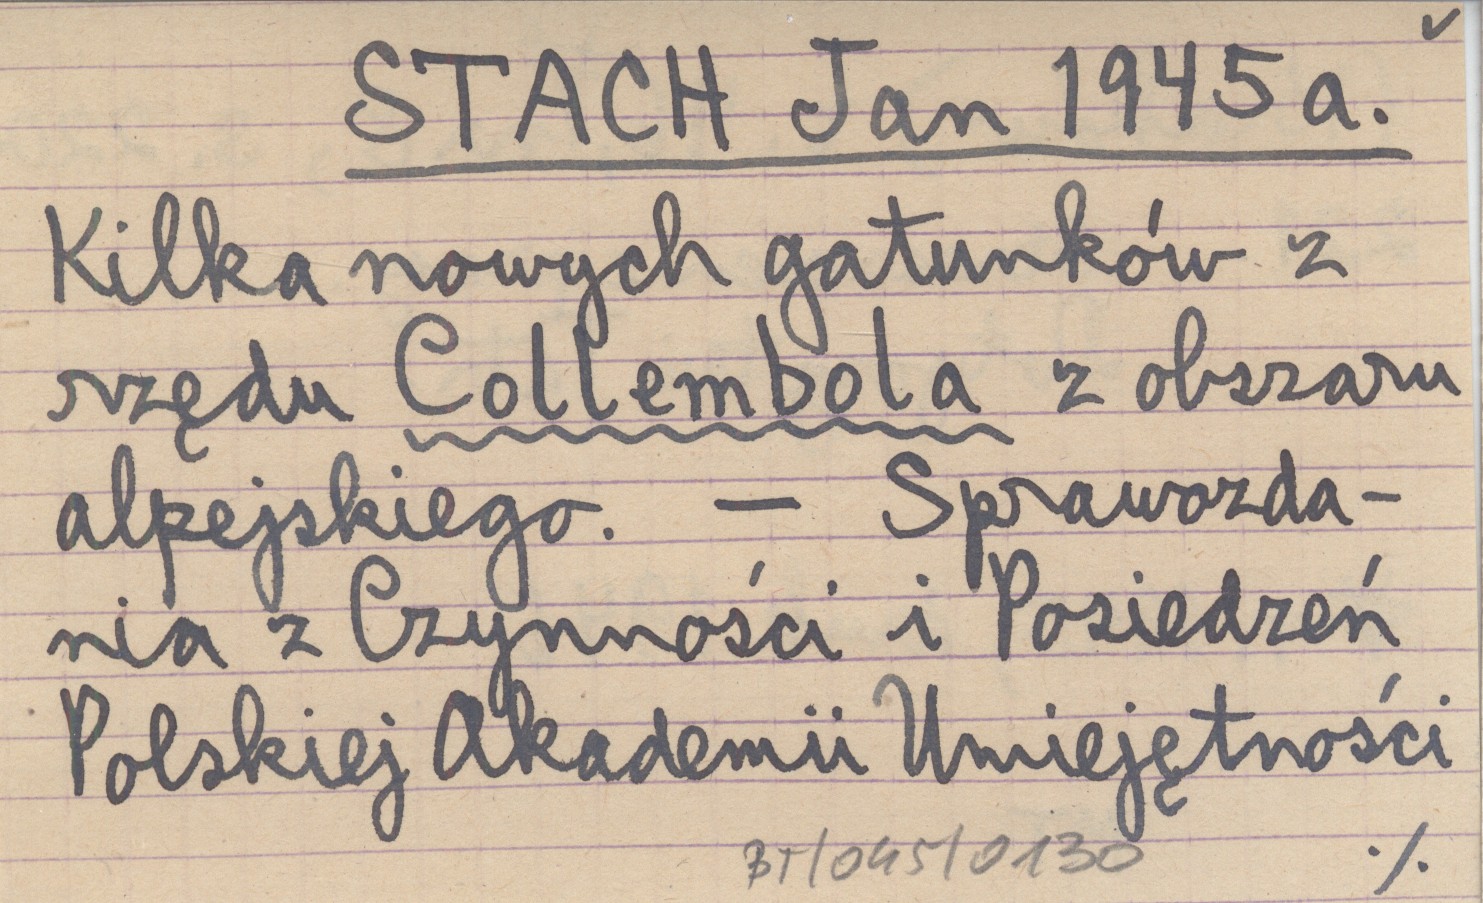 ✓
STACH Jan 1945a.
Kilka nowych gatunków z
rzędu Collembola z obszaru
alpejskiego. — Sprawozda-
nia z Czynności i Posiedzeń
Polskiej Akademii Umiejętności
BT/045/0130
./.